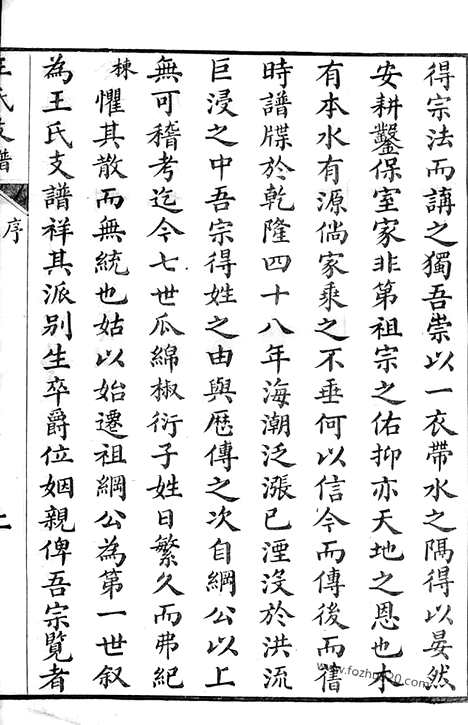 得宗法而講之獨吾崇以一衣帶水之隅得以晏然
安耕鑿保室家非第祖宗之佑抑亦天地之恩也木
有本水有源倘家乘之不垂何以信今而傳後而舊
時譜牒於乾隆四十八年海潮泛漲已湮沒於洪流
巨浸之中吾宗得姓之由與歷傳之次自綱公以上
無可稽考迄今七世瓜綿椒衍子姓日繁久而弗紀
棟懼其散而無統也姑以始遷祖綱公為第一世叙
為王氏支譜祥其派別生卒爵位姻親俾吾宗覽者
王氏支譜
序
www.fozhu920.com